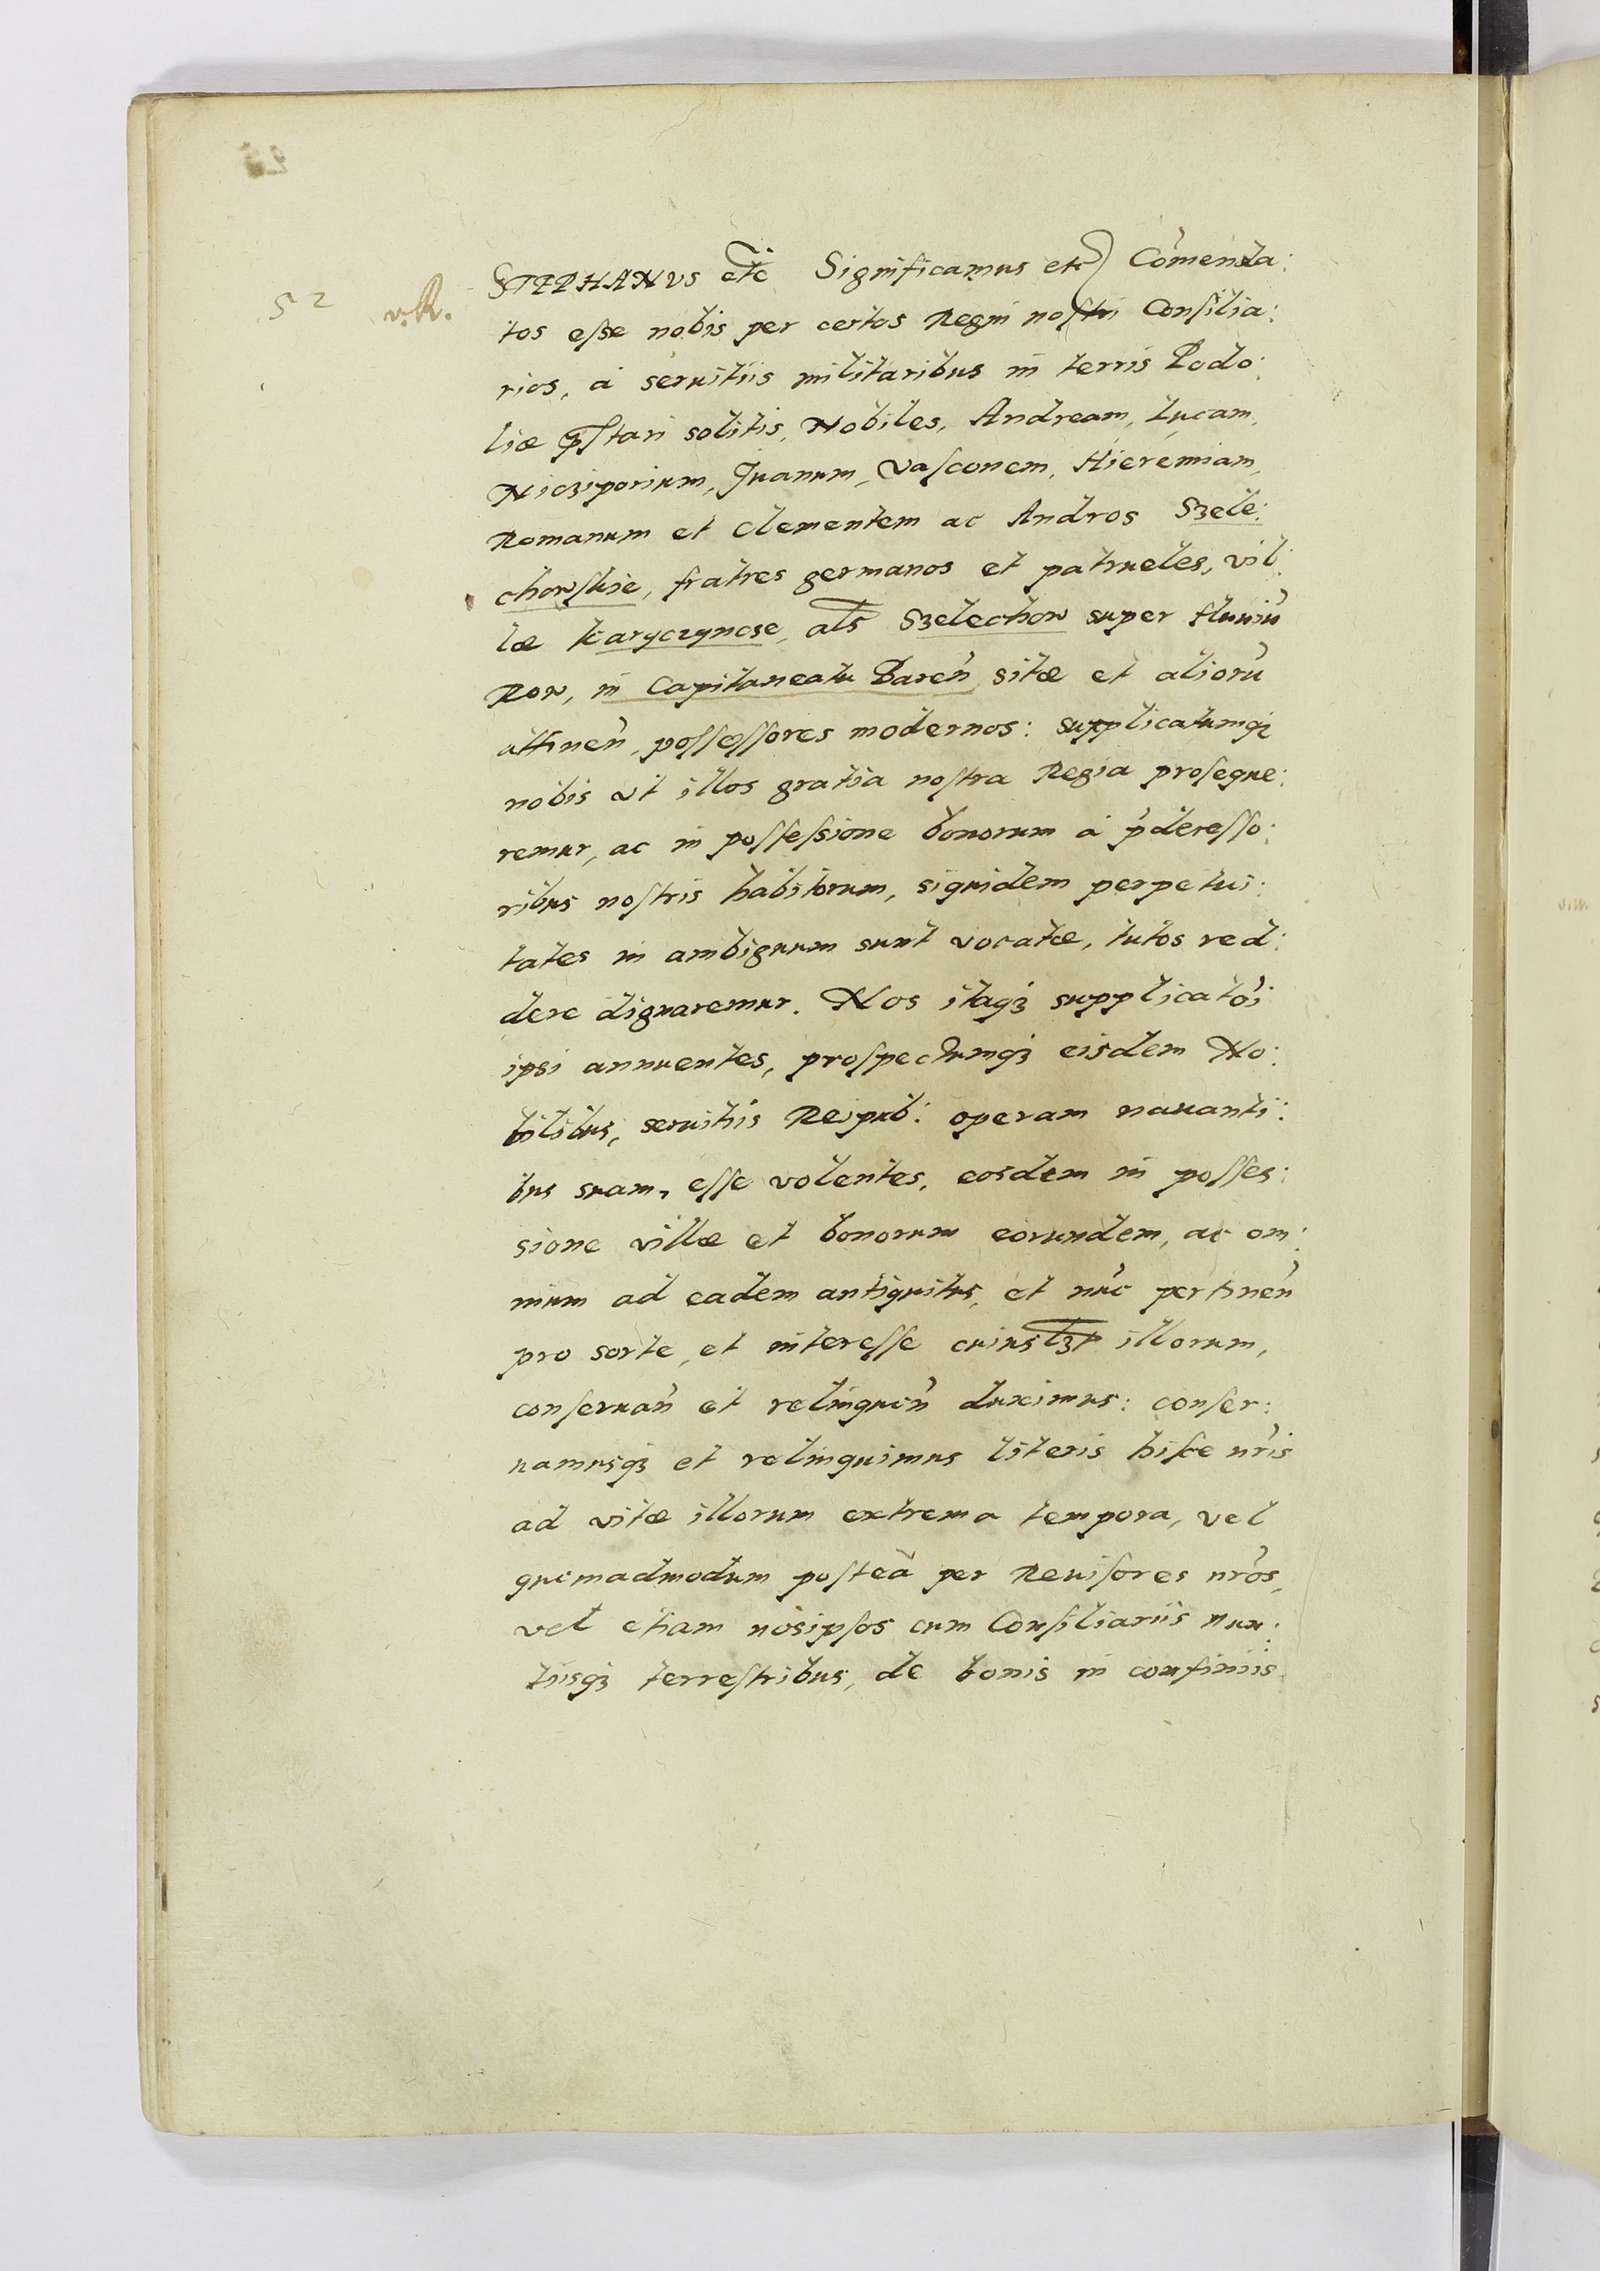 52 v.R.
STEPHANVS etc Significamus etc Com̃enda:
tos eſse nobis per certos Regni noſtri Conſilia:
rios, à seruitiis militaribus in terris Podo:
liæ p̃ſtari solitis, Nobiles, Andream, Lucam,
Nicziporium, Juanum, Vaſconem, Hieremiam,
Romanum et Clementem ac Andros Szele:
chowſkie, fratres germanos et patrueles, vil:
læ Karyczyncze, al̃s Szelechow super fluuiũ
Row, in Capitaneatu Bareñ sitæ et aliorũ
attineñ, poſſeſſores modernos: supplicatumqȝ
nobis vt illos gratia noſtra Regia proſeque:
remur, ac in poſſeſsione bonorum à p̃deceſſo:
ribus noſtris habitorum, siquidem perpetui:
tates in ambiguum sunt vocatæ, tutos red:
dere dignaremur. Nos itaqȝ supplicatõi
ipsi annuentes, proſpectumqȝ eisdem No:
bilibus, seruitiis Reipub: operam nauanti:
bus suam, eſſe volentes, eosdem in poſſes:
sione villæ et bonorum eorundem, ac om:
nium ad eadem antiquitus, et nũc pertineñ
pro sorte, et intereſſe cuiuslȝt illorum,
conſeruañ et relinqueñ duximus: conſer:
uamusqȝ et relinquimus literis hiſce nr̃is
ad vitæ illorum extrema tempora, vel
quemadmodum poſteà per Reuiſores nr̃os,
vel etiam nosipſos cum Conſiliariis nun:
tiisqȝ terreſtribus, de bonis in confiniis